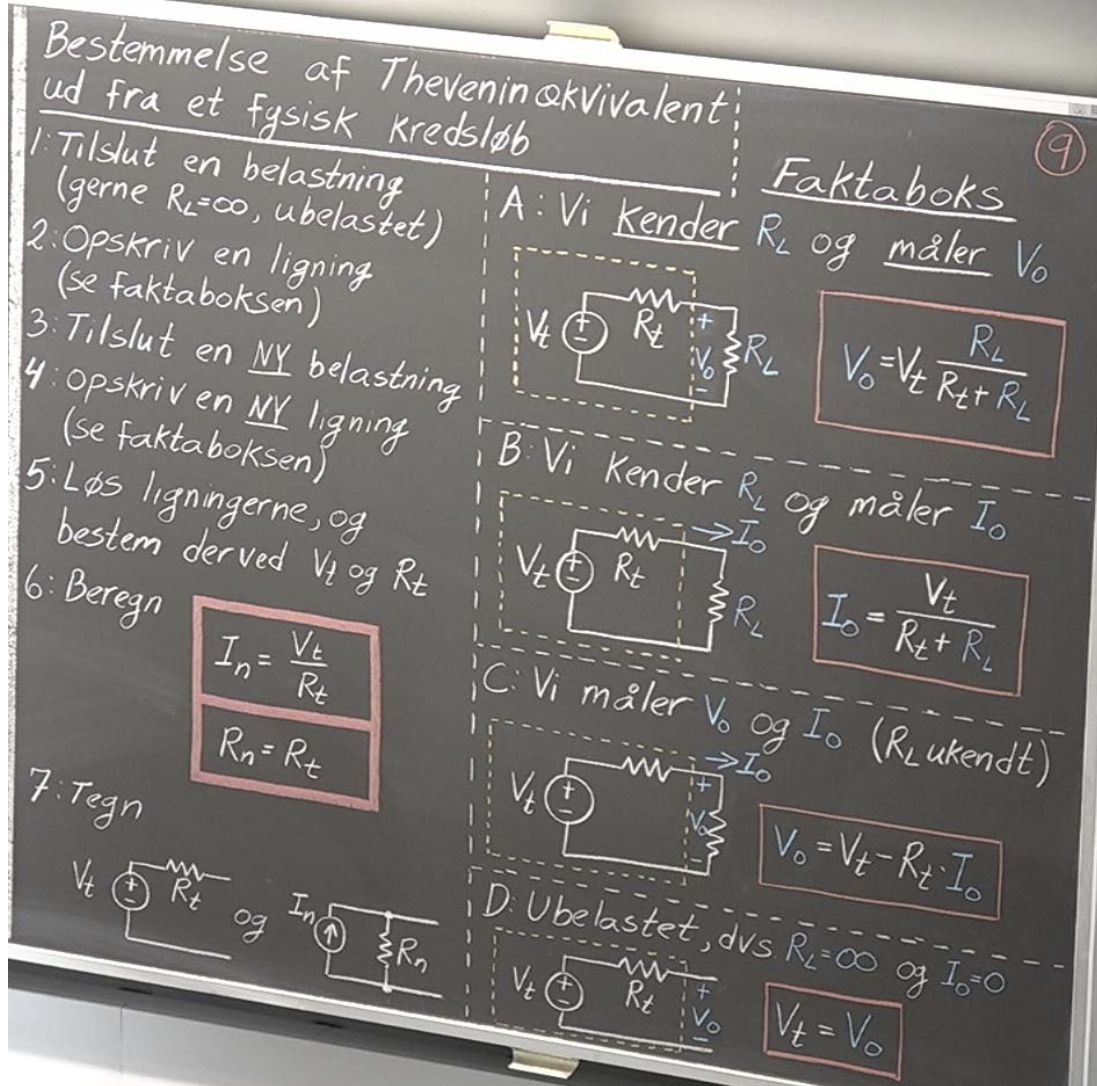 Bestemmelse af Theveninækvivalent
ud fra et fysisk kredsløb
1: Tilslut en belastning
(gerne R_L=∞, ubelastet)
2: Opskriv en ligning
(se faktaboksen)
3: Tilslut en NY belastning
4: Opskriv en NY ligning
(se faktaboksen)
5: Løs ligningerne, og
bestem derved V_t og R_t
6: Beregn
I_n = V_t / R_t
R_n = R_t
7: Tegn
V_t + - R_t og I_n R_n
9
Faktaboks
A: Vi kender R_L og måler V_o
V_t + - R_t + V_o - R_L
V_o = V_t R_L / (R_t + R_L)
B: Vi kender R_L og måler I_o
V_t + - R_t → I_o R_L
I_o = V_t / (R_t + R_L)
C: Vi måler V_o og I_o (R_L ukendt)
V_t + - → I_o + V_o -
V_o = V_t - R_t · I_o
D: Ubelastet, dvs. R_L=∞ og I_o=0
V_t + - R_t + V_o -
V_t = V_o